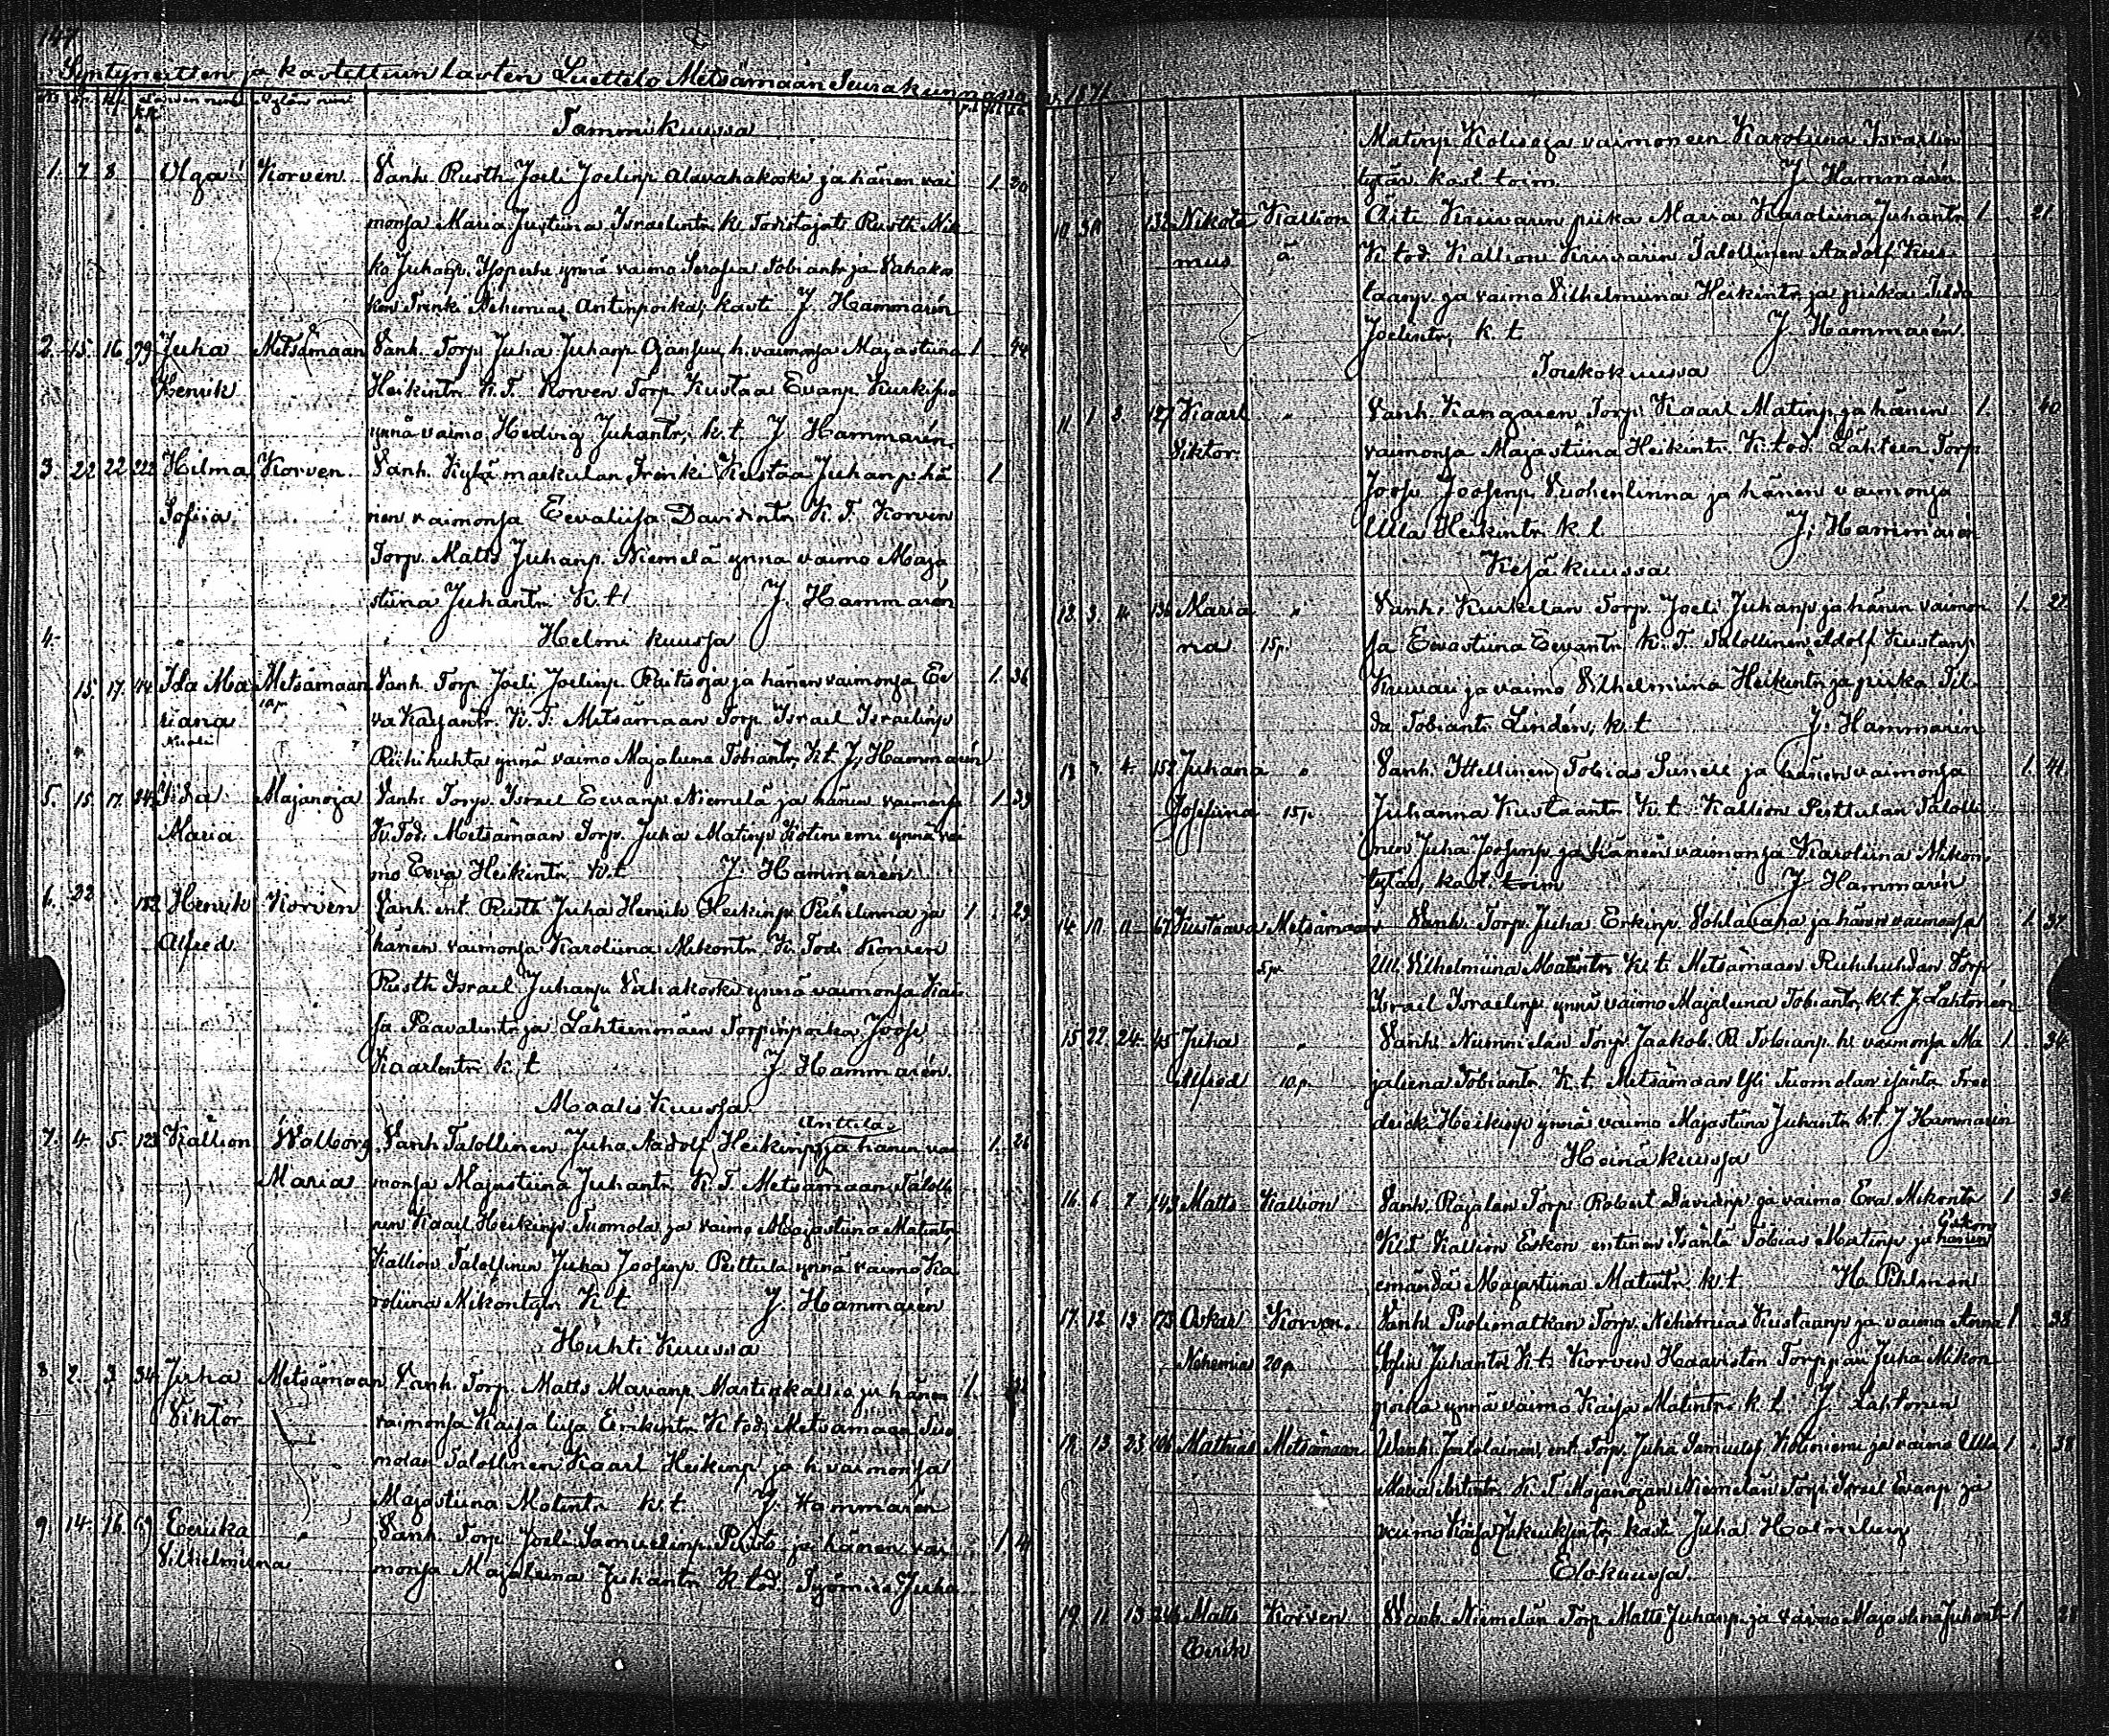 147
Syntyneitten ja kastettuin lasten Luettelo Metsämään Seurakunnassa v. 1871
Tammikuussa
1. 7 8 Olga Korven Vanh. Rusth. Joeli Joelinp. Alavahakoski ja hänen vai 1 20
monsa Maria Justiina Israelintr. K. Todistajat: Rusth. Mik
ko Juhanp. Isoperhe ynnä vaimo Serafia Tobiantr. ja Vahakos
ken Trenki Nehemias Antinpoika, kasti J. Hammarén
2. 15. 16 79 Juha Metsämaan Vanh. Torp. Juha Juhanp. Ojansuu, h. vaimonsa Majastiina 1 44
Henrik Heikintr. K.T. Korven Torp. Kustaa Evanp. Kurkisuo
ynnä vaimo Hedvig Juhantr, k.t. J. Hammarén.
3. 22 22 222 Hilma Korven Vanh. Kylä markulan Trenki Kustaa Juhanp. hä 1
Sofiia nen vaimonsa Eevaliisa Davidintr. K.T. Korven
Torp. Matts Juhanp. Niemelä ynnä vaimo Maja
stiina Juhantr. K.t. J. Hammarén
4. Helmi kuussa
15. 17. 44 Ida Ma Metsämaan Vanh. Torp. Joeli Joelinp. Raitisoja ja hänen vaimonsa Ee 1. 36
riana 10 p. va Kaapantr. K.T. Metsämaan Torp. Israel Israelinp
Kuoli Riihihuhta ynnä vaimo Majaleena Tobiantr. K.t. J. Hammarén
5. 15 17. 242 Ida Majanoja Vanh. Torp. Israel Eevanp. Niemelä ja hänen vaimonsa 1 33
Maria K. Tod. Metsämaan Torp. Juha Matinp. Kotiniemi ynnä vai
mo Eeva Heikintr. k.t. J. Hammarén
6. 22 182 Henrik Korven Vanh. ent. Rusth. Juha Henrik Heikinp. Perhelinna ja 1 29
Alfred hänen vaimonsa Karoliina Mikontr. K. Tod. Korven
Rusth. Israel Juhanp. Vahakoski ynnä vaimonsa Kai
sa Paavalintr. ja Lähteenmäen Torpinpoika Joose
Kaarlentr. k.t. J. Hammarén.
Maalis Kuussa
Anttila
7. 4. 5. 123 Kallion Walborg Vanh. Talollinen Juha Aadolf Heikinp. ja hänen vai 1. 26
Maria monsa Majastiina Juhantr. K.T. Metsämaan Taloll
nen Kaarl Heikinp. Tuomola ja vaimo Majastiina Matintr,
Kallion Talollinen Juha Joosepp. Peittula ynnä vaimo Ka
roliina Mikontytr. K.t. J. Hammarén
Huhti Kuussa
8 2. 3 34 Juha Metsämaan Vanh. Torp. Matts Mananp. Martinkallio ja hänen 1.
Viktor vaimonsa Kaisa liisa Eerikintr. K. tod. Metsämaan Tuo
molan Talollinen Kaarl Heikinp. ja h. vaimonsa
Majastiina Matintr. k.t. J. Hammarén
9. 14. 16. 69 Eeriika " Vanh. Torp. Joeli Samuelinp. Peltto ja hänen vai 1 41
Vilhelmiina monsa Majaleena Juhantr. K. tod. Työmies Juha
Matinp. Kolisoja vaimoneen Karoliina Israelin
tytär. kast. toim. J. Hammarén
10 30 132 Nikode Kallion Äiti Kruivarin piika Maria Karoliina Juhantr. 1. 21.
mus ä. K. tod. Kallion Kruivarin Talollinen Aadolf Kus
taanp. ja vaimo Vilhelmiina Heikintr. ja piika Tilda
Joelintr, k.t. J. Hammarén.
Toukokuussa
11. 1 3. 127 Kaarl " Vanh. Kangasen Torp. Kaarl Matinp. ja hänen 1. 40.
Viktor. vaimonsa Majastiina Heikintr. K. tod. Lähteen Torp.
Joose Joosepp. Vuohenlinna ja hänen vaimonsa
Ulla Heikintr. k.t. J. Hammarén
Kesäkuussa
12. 3. 4. 136 Maria " Vanh. Kurkelan Torp. Joeli Juhanp. ja hänen vaimon 1. 27.
na 15 p. sa Eevastiina Eevantr. K.T. Talollinen Adolf Kustanp.
Kruuvari ja vaimo Vilhelmiina Heikintr. ja piika Til
da Tobiantr. Lindén, k.t. J. Hammarén
13 3. 4. 152 Juhana " Vanh. Itellinen Tobias Sunell ja hänen vaimonsa 1. 41.
Josefiina 15 p. Juhanna Kustaantr. K.t. Kallion Peittulan Talolli
nen Juha Joosepp. ja hänen vaimonsa Karoliina Mikon
tytär, kast. toim J. Hammarén
14. 10. 11 67 Kustaava Metsämaan Vanh. Torp. Juha Erkinp. Vohlasaha ja hänen vaimonsa 1. 37.
5 p. Ul. Vilhelmiina Matintr. K.t. Metsämaan Riihihuhdan Torp.
Israel Israelinp. ynnä vaimo Majaleena Tobiantr, k.t. J. Lahtonen
15 22. 24. 45 Juha " Vanh. Nummelan Torp. Jaakob. R. Tobianp. h. vaimonsa Ma 1 34.
Alfred 10 p. jaliena Tobiantr. K.t. Metsämaan Yli Tuomolan isäntä Fred
deriik Heikinp. ynnä vaimo Majastiina Juhantr. k.t. J. Hammarén
Heinäkuussa
16. 6 7 143 Matts Kallion Vanh. Rajalan Torp. Robert Davidnp. ja vaimo Eva Mikontr. 1 36
K.t.T. Kallion Eskon entinen Isäntä Tobias Matinp. ja hänen Eskon
emändä Majastiina Matintr. k.t. H. Pihlman
17. 12 13 173 Oskar Korven. Vanh. Puolimatkan Torp. Nehemias Kustaanp. ja vaimo Anna 1. 38
Nehemias 20 p. Sofia Juhantr. K.t. Korven Haaviston Torppari Juha Mikon
poika ynnä vaimo Kaisa Matintr. k.t. J. Lahtonen
18. 13 23 106 Mathias Metsämaan Vanh. Joutolainen, ent. Torp. Juha Samuelsp. Kotiniemi ja vaimo Ulla 1. 38
Maria Antintr. K.T. Majanojan Niemelän Torp. Israel Evanp. ja
vaimo Kaisa kasti Juha Holmberg
Elokuussa
19. 11 13 Matts Korven Vanh. Niemelän Torp. Matts Juhanp. ja vaimo Majastiina Juhantr. 1. 28
Eerik